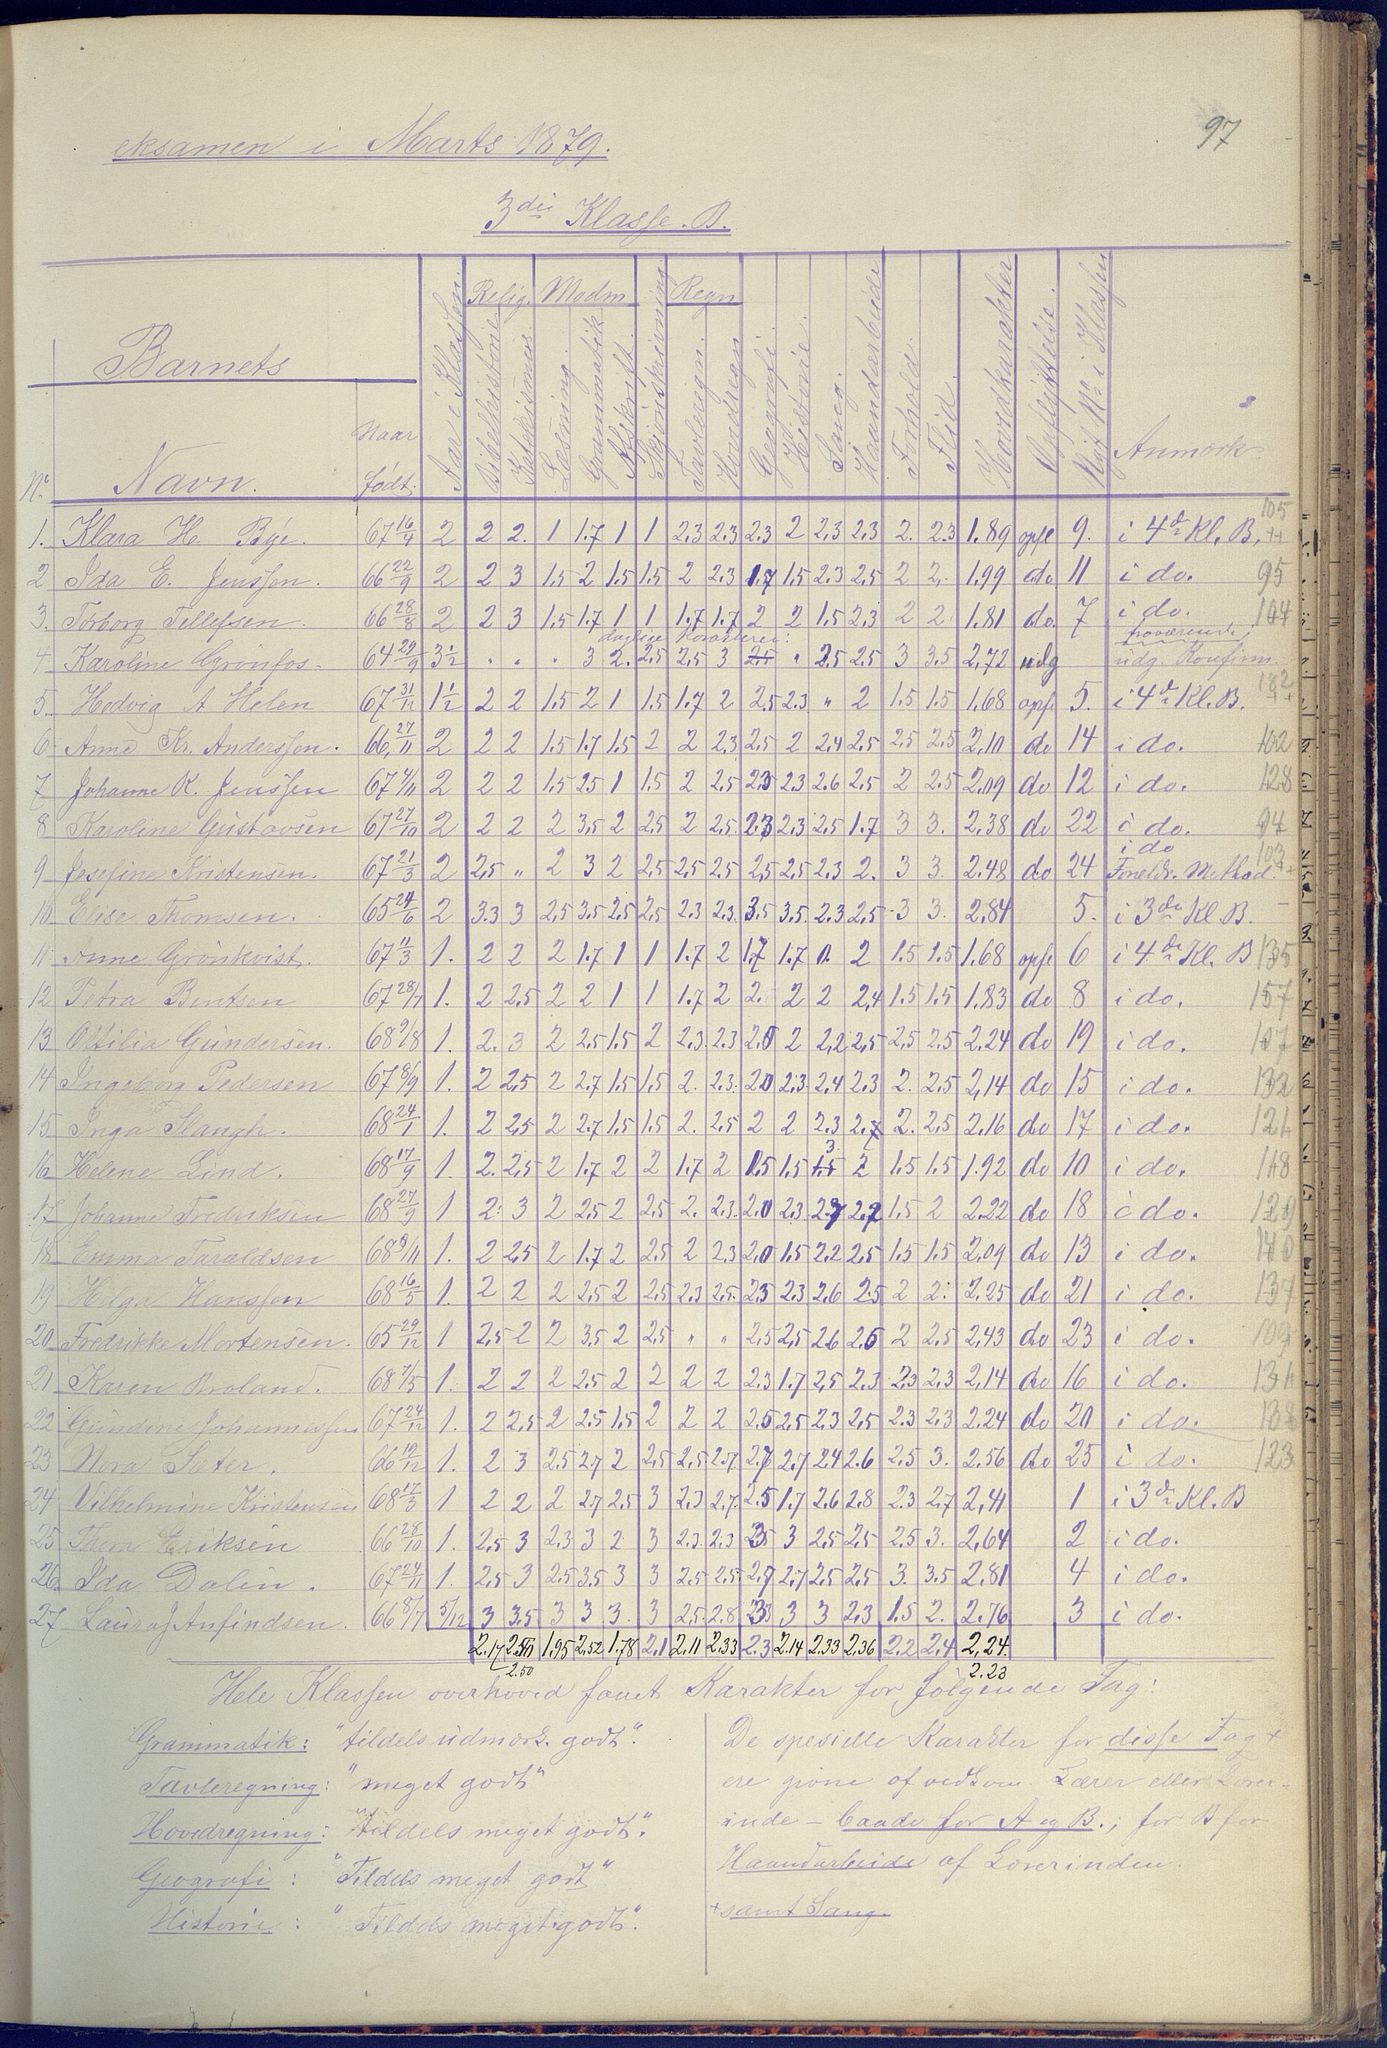 97
eksamen i Marts 1879.
3die Klasse. B.
Relig. Modm Regn
Barnets
No Navn. Naar født. Aar i Klassen. Bibelhistorie Katekismus Læsning. Grammatik Retskrift. Skjönskrivning Tavleregn. Hovedregn Geografi. Historie. Sang. Haandarbeide Forhold. Flid. Hovedkarakter Opflyttelse. Nyt No i Klassen Anmærk.
105
1. Klara H. Bye. 67 16/4 2 2 2. 1 1.7 1 1 2.3 2.3 2.3 2 2.3 2.3 2. 2.3 1.89 opfl 9. i 4de Kl. B. ++
2 Ida E. Jenssen. 66 22/9 2 2 3 1.5 2 1.5 1.5 2 2.3 1.7 1.5 2.3 2.5 2 2. 1.99 do 11 i do. 95
3. Torborg Tellefsen. 66 28/8 2 2 3 1.5 1.7 1 1 1.7 1.7 2 2 1.5 2.3 2 2 1.81 do. 7 i do. 104
daglige Karakterer: fraværende,
4 Karoline Grönfos. 64 29/9 3½ " " " 3 2. 2.5 2.5 3 2.5 " 2.5 2.5 3 3.5 2,72 udg udg. Konfirm.
5. Hedvig A Helen 67 31/12 1½ 2 2 1.5 2 1 1.5 1.7 2 2.5 2.3 " 2 1.5 1.5 1.68 opfl 5. i 4de Kl. B. 182
6 Anne Kr. Anderssen. 66, 27/11 2 2 2 1.5 1.7 1.5 2 2 2.3 2.5 2 2.4 2.5 2.5 2.5 2,10 do 14 i do.
7 Johanne K. Jenssen 67 4/11 2 2 2 1.5 2.5 1 1.5 2 2.5 2.5 2.3 2.6 2.5 2 2.5 2.09 do 12 i do. 128
8 Karoline Gustavsen 67 27/10 2 2 2 2 3.5 2 2.5 2 2.5. 2.3 2.3 2.5 1.7 3 3. 2.38 do 22 i do. 94
i do 103
9 Josefine Kristensen. 67 21/3 2 2.5 " 2 3 2 2.5 2.5 2.5 2.5 2.5 2.3 2. 3 3. 2.48 do 24 Foreldr. Methad.
10 Elise Thomsen. 65 24/6 2 3.3 3 2.5 3.5 2.5 2.5 2.3 2.3. 3.5 3.5. 2.3 2.5 3 3. 2.84 5. i 3die Kl. B.
11 Anne Grönkvist. 67 11/3 1. 2 2 2 1.7 1 1 1.7 2 1.7 1.7 2 1.5 1.5 1.68 opfl 6 i 4de Kl. B 135
12 Petra Bentsen 67 28/7 1. 2 2.5 2 2 1 1 1.7 2 2. 2 2 2,4 1.5 1.5 1.83 do 8 i do. 157
13 Ottilia Gundersen. 68 9/8 1. 2. 3 2 2.5 1.5 2 2.3. 2.3 2.0 2 2.2 2.5 2.5 2.5 2.24 do 19 i do. 107
14 Ingeborg Pedersen 67 8/9 1. 2 2.5 2 2.7 1.5 1.5 2. 2.3. 2.0 2.3. 2.4 2.3 2. 2.5 2,14 do 15 i do. 132
15 Inga Flaugh. 68 24/1 1. 2 2.5 2 2.7 1.5 1.5 2. 2.5 2 2 2.3 2.7 2. 2.5 2.16 do 17 i do. 124
3.
16 Helene Lind. 68 17/9 1. 2. 2.5 2 1.7 2 2 1.7 2 1.5 1.5 1.5 2 1.5 1.5 1.92 do 10 i do. 118
17 Johanne Fredriksen 68 27/9 1 2. 3 2 2.5 2 2.5 2. 2.3. 2.0 2.3. 2.7 2.7 1.5 2 2.22 do 18 i do. 129
18 Emma Taraldsen 68 9/11 1. 2 2.5 2 1.7 2 2.5 2 2.3 2.0 1.5 2.2 2.5 1.5 1.5 2.09 do 13 i do. 140
19 Helga Hanssen 68 16/5 1. 2 2 2 2.5 2 2.5 2.3 2.5. 2.5 2.3 2.6 2.5 2 2. 2.25 do 21 i do. 137
20 Fredrikke Mortensen. 65 29/12 1 2.5 2 2 3.5 2 2.5 " " 2.5 2.5 2.6 2.5 2 2.5 2,43 do 23 i do. 109
21 Karen Broland. 68 7/5 1. 2 2 2 2.5 2 2 2 2 2.3 1.7 2.5 2.3 2.3 2.3 2,14 do 16 i do.
22 Gundine Johannessen 67 24/12 1. 2 2.5 2 2.5 1.5 2 2 2 2.5 2.5 2.3 2.5 2.3 2.3 2.24 do 20 i do. 138
23 Nora Sæter. 66 19/12 1. 2 3 2.5 2.7 2 2.5 2.5 2.7. 2.7 2.7 2.4 2.6 2.5 3. 2.56 do 25 i do. 123
24 Vilhelmine Kristensen 68 17/3 1 2 2 2 2.7 2.5 3 2.3 2.7. 2.5 1.7 2.6 2.8 2.3 2.7 2,41 1 i 3die Kl. B
25 Thora Eriksen 66 28/10 1. 2.5 3 2.3 3 2 3 2.3. 2.3 3.5 3 2.5 2.5 2.5 3. 2,64 2 i do.
26 Ida Dalen. 67 24/11 1. 2.5 3 2.5 3.5 3 3 2.5 2.5. 2.7 2.7 2.5 2.5 3. 3.5 2.81 4 i do.
27 Laura J Anfindsen. 66 8/7 5/12 3 3.5 3 3 3. 3 2.5. 2.8 3.3 3 3 2.3 1.5 2. 2.76 3 i do.
2.17 2.50 1.95 2.52 1.78 2.1 2.11 2.33 2.3 2.14 2.33 2,36 2.2 2.4 2,24
2.50 2.23
Hele Klassen overhoved faaet Karakter for følgende Fag:
Grammatik: "tildels udmærk. godt".
Tavleregning: "meget godt"
Hovedregning: "Tildels meget godt".
Geografi : "Tildels meget godt"
Historie : "Tildels meget godt".
De spesielle Karakter for disse Fag +
ere givne af vedkom. Lærer eller Lærer-
inde – baade for A og B.; for B for
Haandarbeide af Lærerinden.
+ samt Sang.